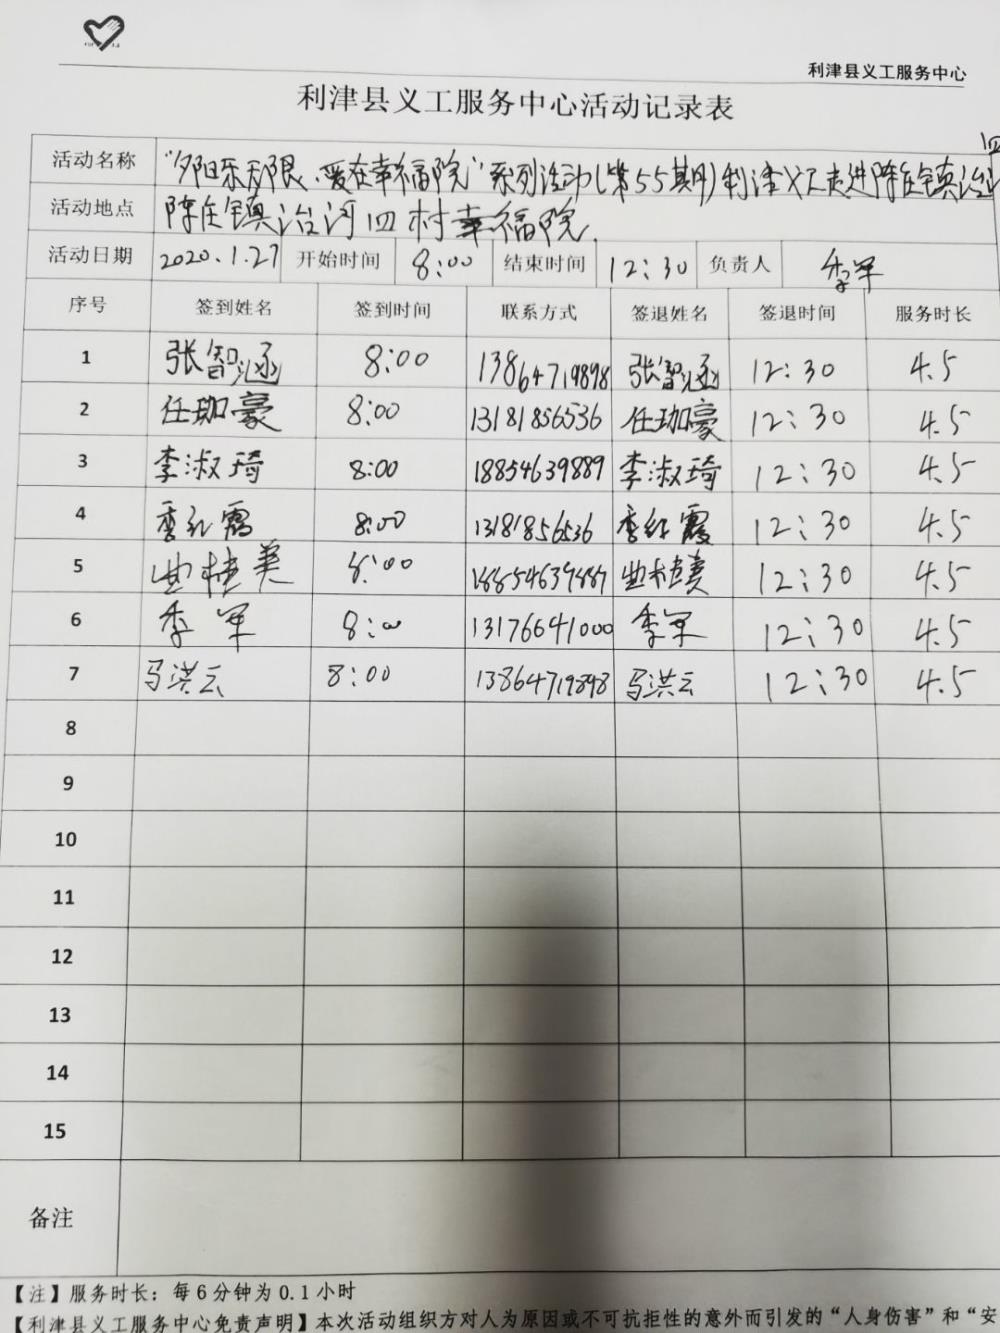 利津县义工服务中心
利津县义工服务中心活动记录表
活动名称 "夕阳乐无限、爱在幸福院"系列活动(第55期)利津义工走进陈庄镇治河四
活动地点 陈庄镇治河四村幸福院.
活动日期 2020.1.27 开始时间 8:00 结束时间 12:30 负责人 李军
序号 签到姓名 签到时间 联系方式 签退姓名 签退时间 服务时长
1 张智涵 8:00 13864719898 张智涵 12:30 4.5
2 任珈豪 8:00 13181856536 任珈豪 12:30 4.5
3 李淑琦 8:00 18854639889 李淑琦 12:30 4.5
4 李红霞 8:00 13181856536 李红霞 12:30 4.5
5 曲桂美 8:00 18854639889 曲桂美 12:30 4.5
6 李军 8:00 13176641000 李军 12:30 4.5
7 马洪云 8:00 13864719898 马洪云 12:30 4.5
8
9
10
11
12
13
14
15
备注
【注】服务时长：每6分钟为0.1小时
【利津县义工服务中心免责声明】本次活动组织方对人为原因或不可抗拒性的意外而引发的“人身伤害”和“安